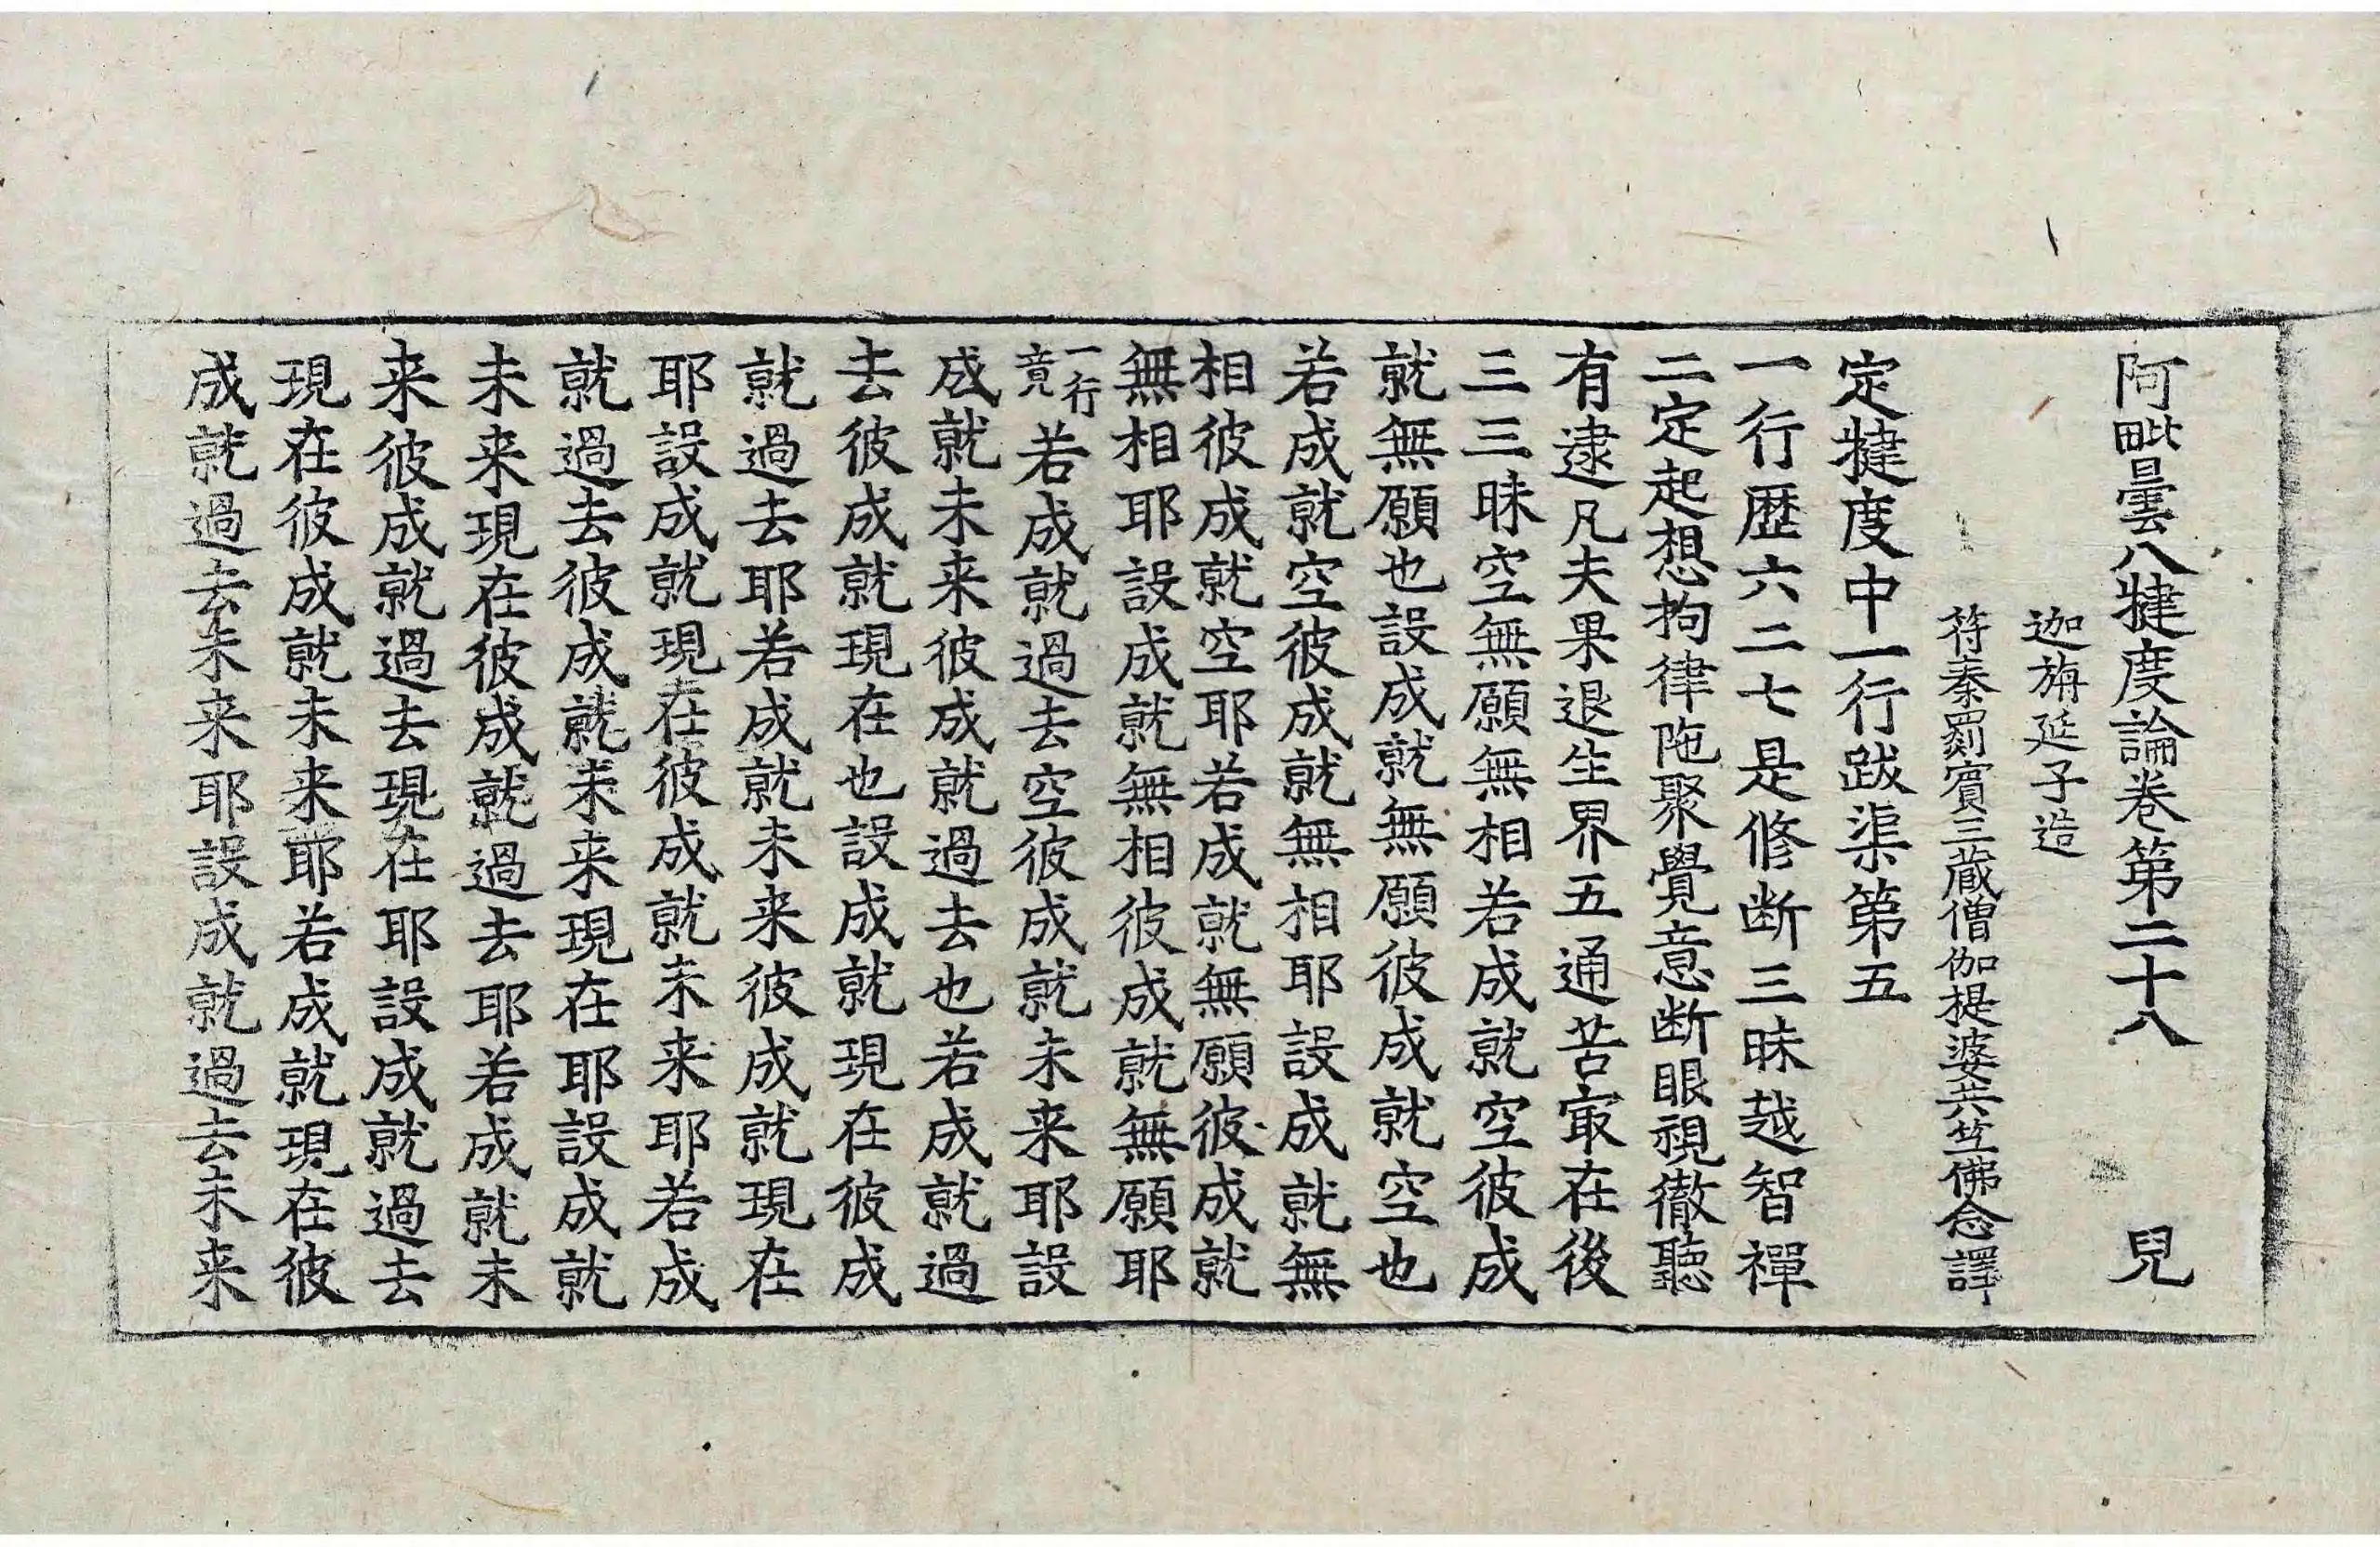 阿毗曇八犍度論卷第二十八 兒
迦旃延子造
符秦罽賓三藏僧伽提婆共竺佛念譯
定犍度中一行跋渠第五
一行歷六二七是修断三昧越智禪
二定起想拘律陁聚覺意断眼視徹聽
有逮凡夫果退生界五通苦㝡在後
三三昧空無願無相若成就空彼成
就無願也設成就無願彼成就空也
若成就空彼成就無相耶設成就無
相彼成就空耶若成就無願彼成就
無相耶設成就無相彼成就無願耶
一行竟若成就過去空彼成就未来耶設
成就未来彼成就過去也若成就過
去彼成就現在也設成就現在彼成
就過去耶若成就未来彼成就現在
耶設成就現在彼成就未来耶若成
就過去彼成就未来現在耶設成就
未来現在彼成就過去耶若成就未
来彼成就過去現在耶設成就過去
現在彼成就未来耶若成就現在彼
成就過去未来耶設成就過去未来